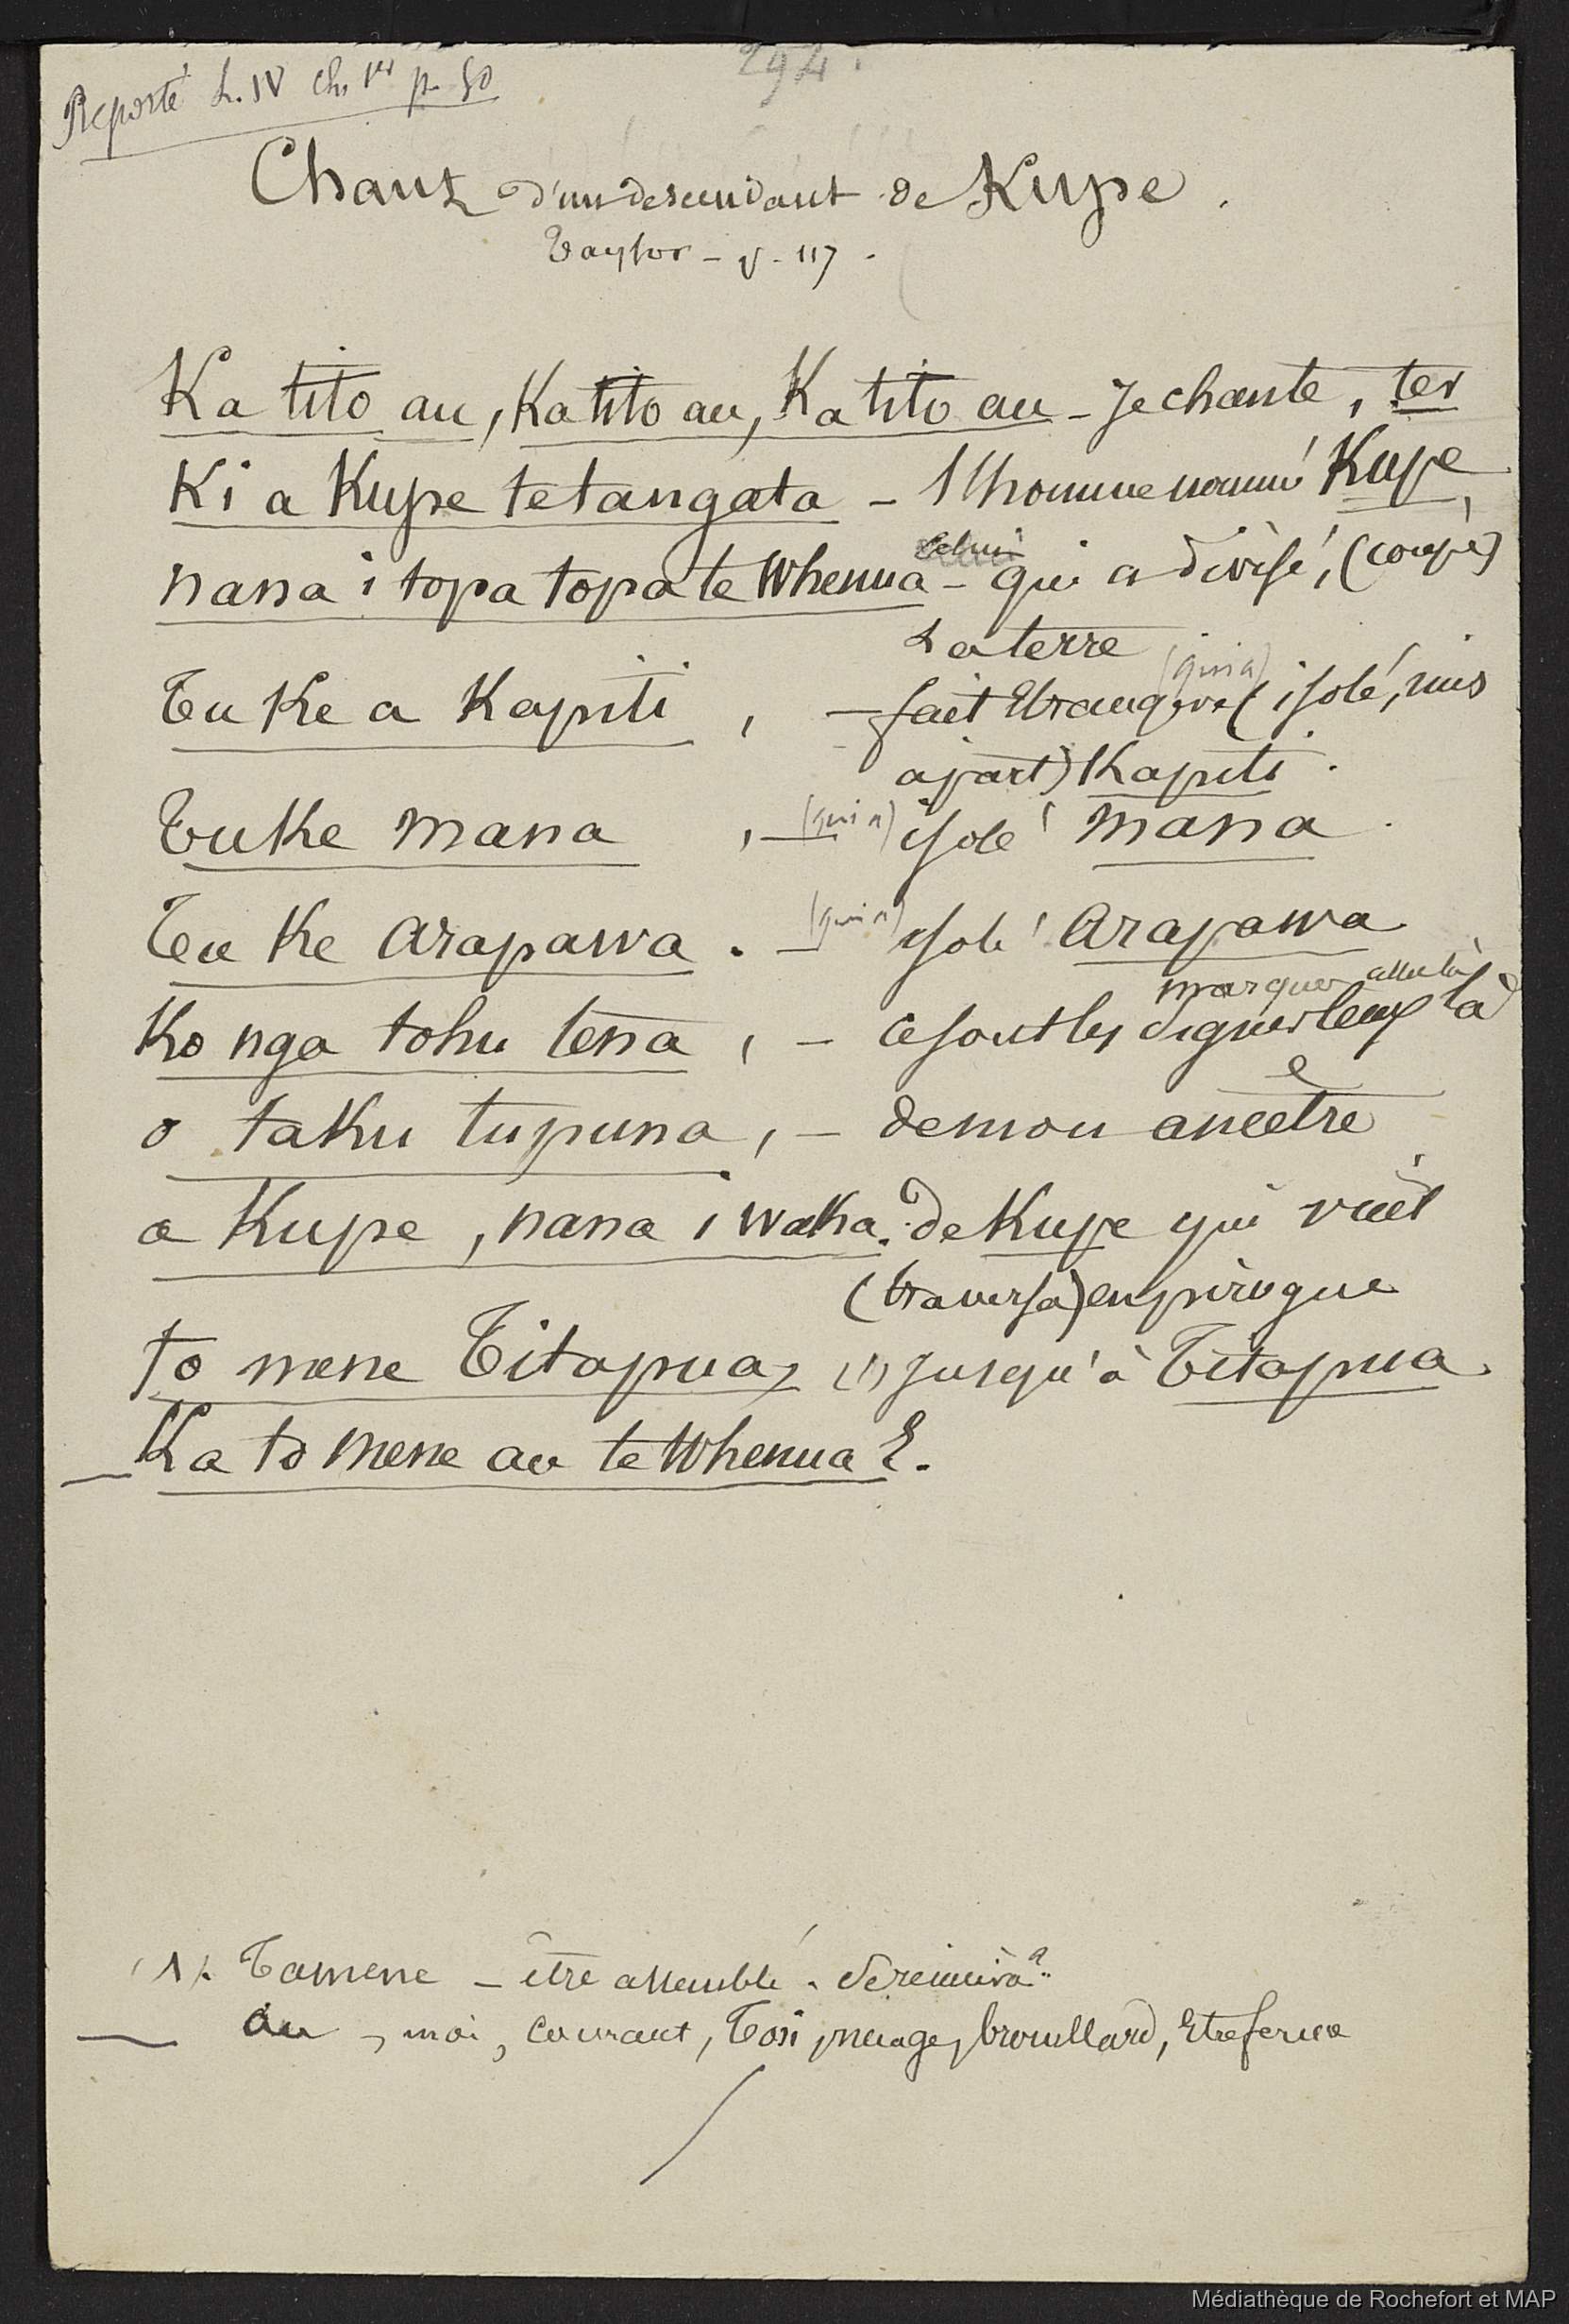 292.
Reporté L. IV Ch. 1er p. 50
Chant d'un descendant de Kupe.
Taylor - p. 117.
Ka tito au, Ka tito au, Ka tito au - Je chante, ter
Ki a Kupe te tangata - l'homme nommé Kupe,
nana i topa topa te Whenua - qui a divisé, (coupé)
La terre
Tu Ke a Kapiti, - fait Etrangère (qui a) (isolé, mis
apart) Kapiti.
Tu Ke mana, - (qui a) isolé mana.
Tu Ke Arapawa. - (qui a) isolé Arapawa
marques
Ko nga tohu tena, - ce sont les signes là
o taku tupuna, - de mon ancêtre
a Kupe, nana i waka. de Kupe qui vint
(traversa) en pirogue
to mene Titapua, (1) jusqu'à Titapua.
Ka to mene au te Whenua E.
(1). Tamene - être assemblé. se réunir à ?
au, moi, courant, nuage, brouillard, Etre ferme
Médiathèque de Rochefort et MAP